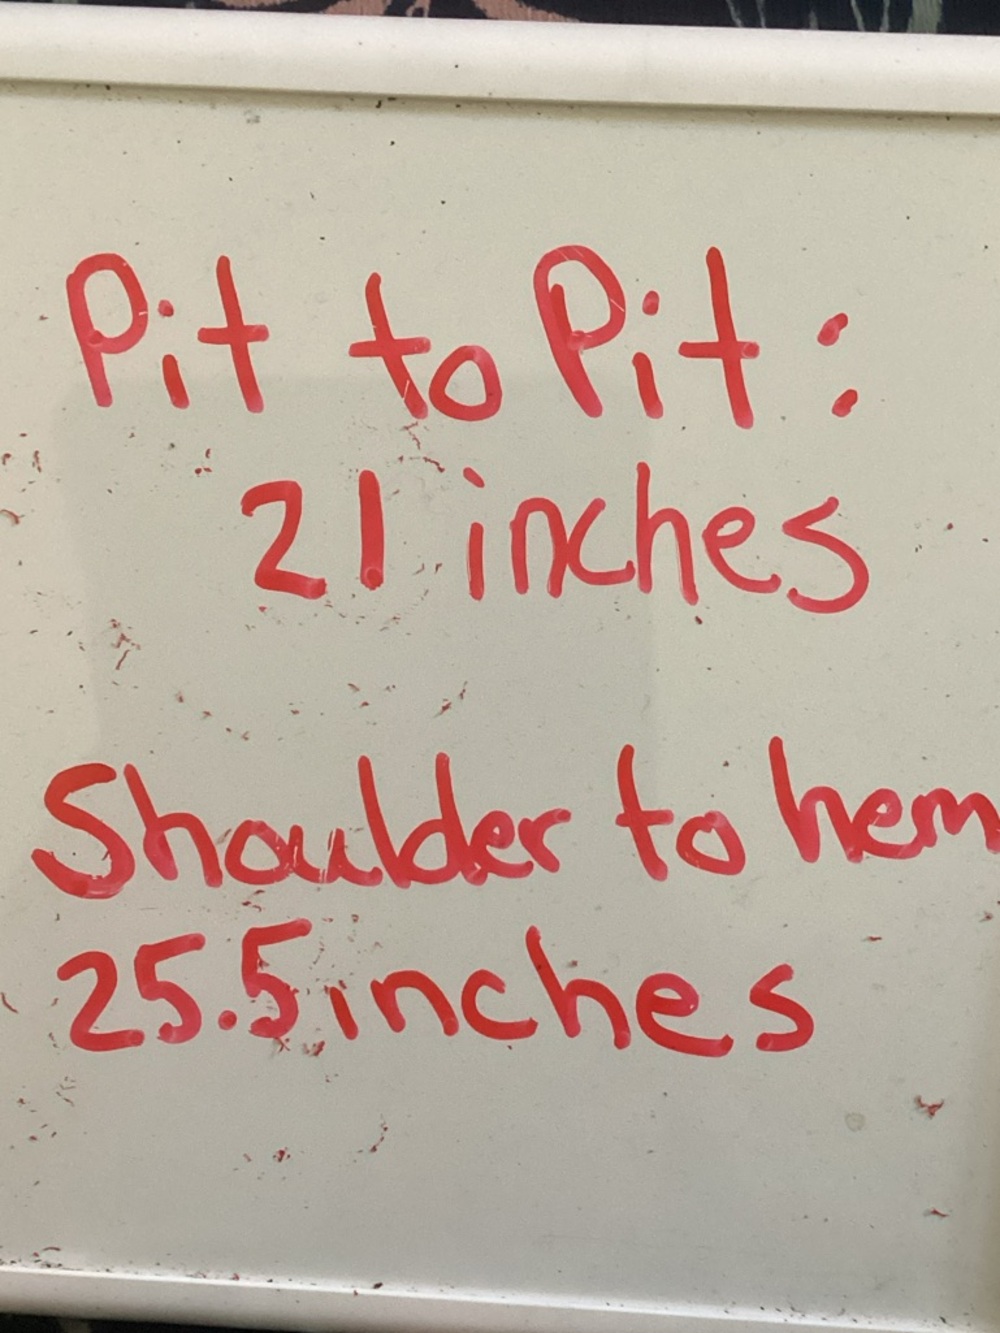 Pit to Pit:
21 inches
Shoulder to hem
25.5 inches